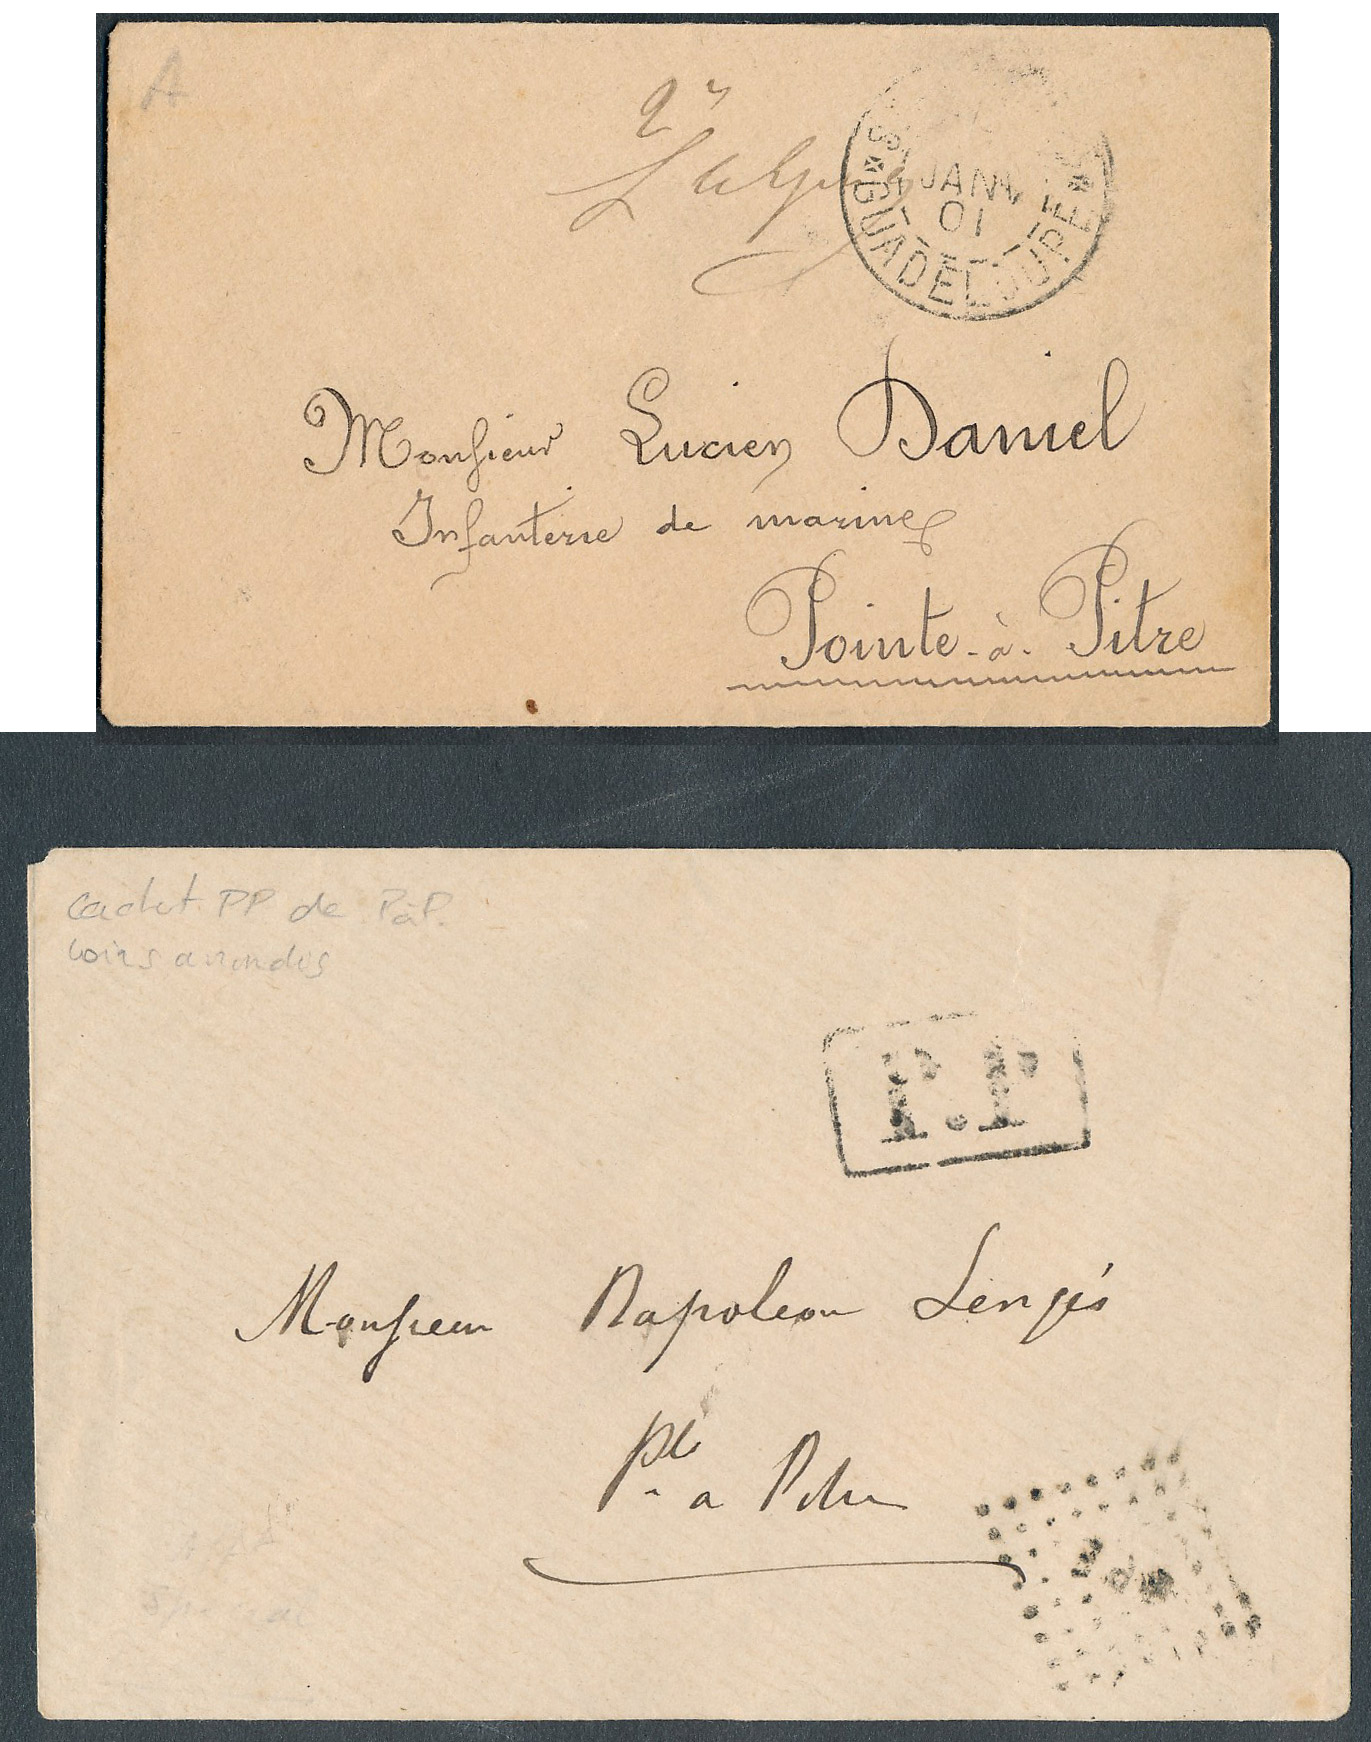 A
JANV
01
GUADELOUPE
Monsieur Lucien Daniel
Infanterie de marine
Pointe-à-Pitre
cachet PP de PàP.
coins arrondis
P.P
Monsieur Napoleon
Pte a Pitre